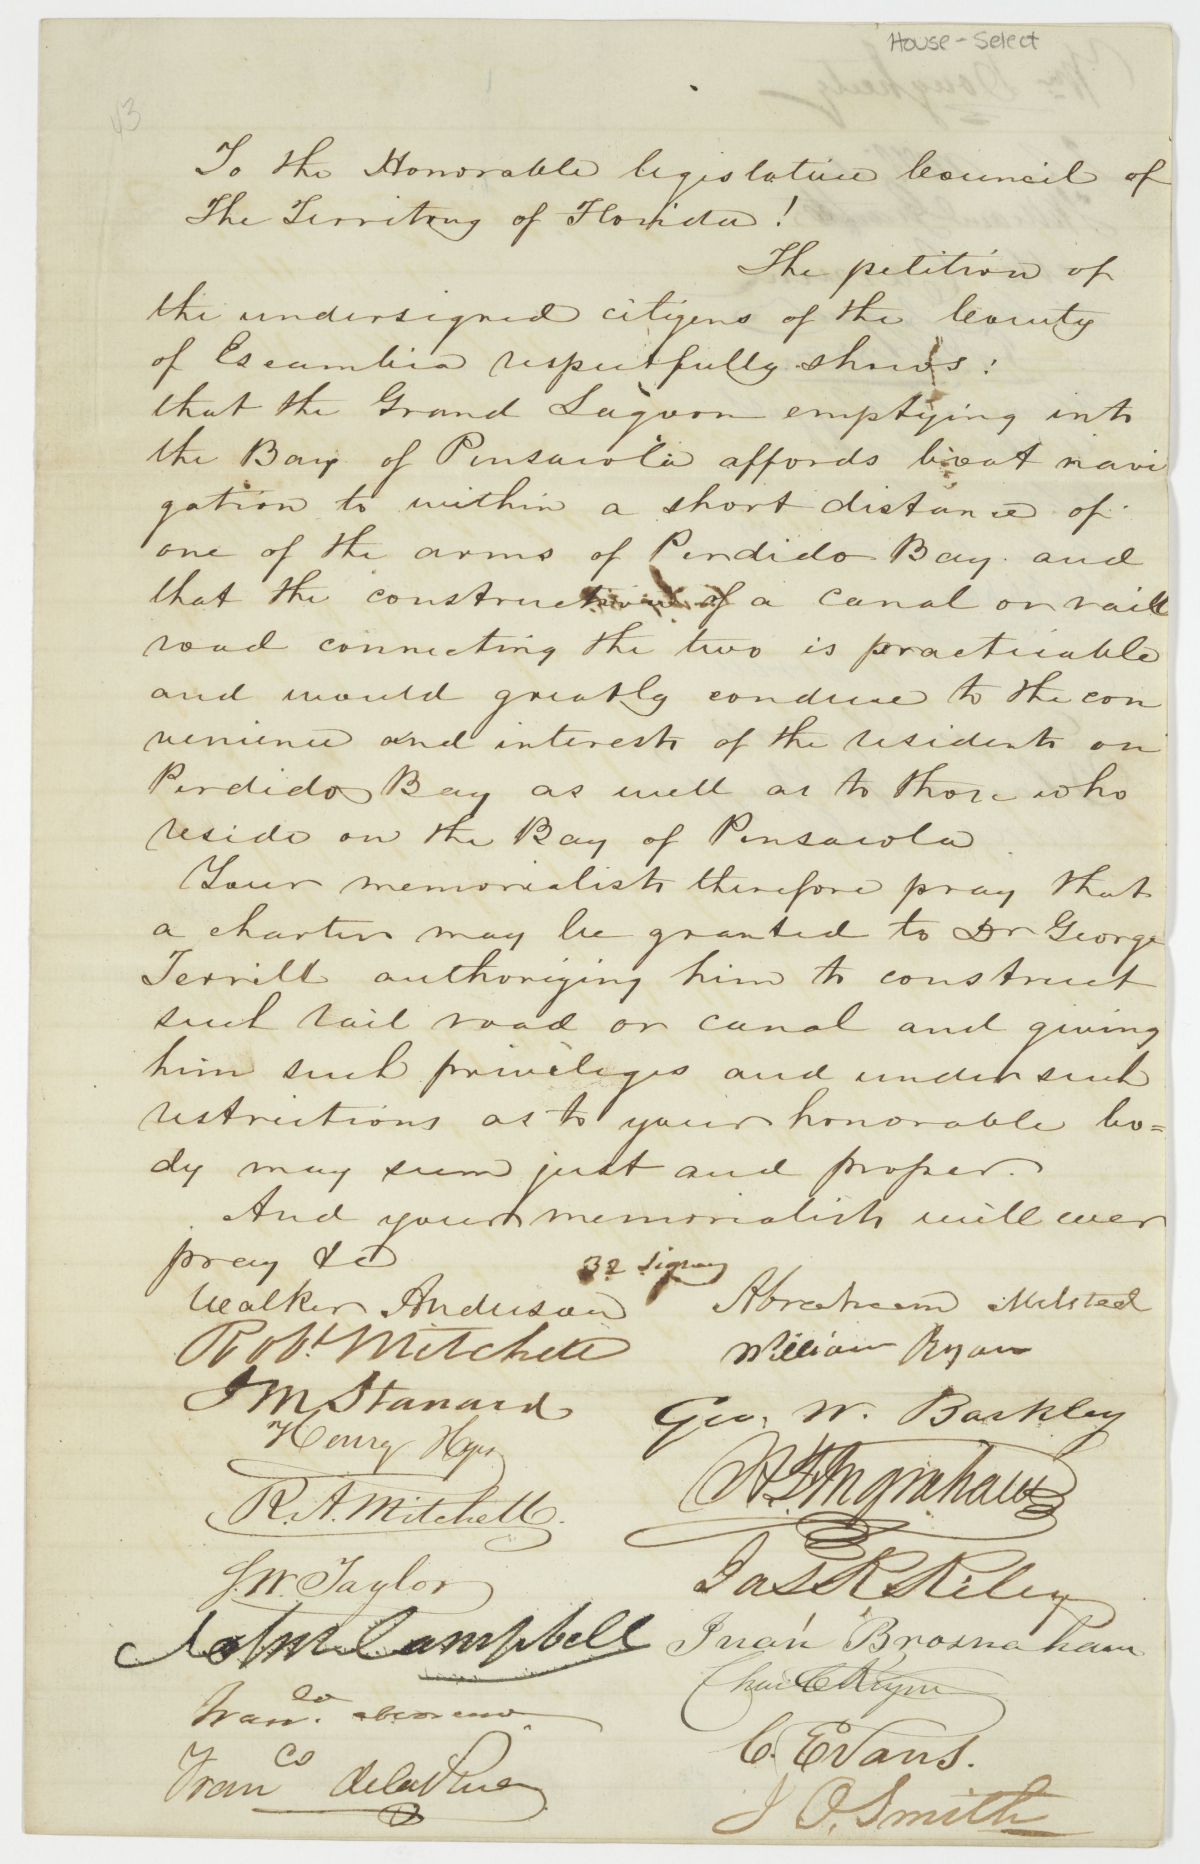 House - Select
43
To the Honorable legislative Council of
The Territory of Florida!
The petition of
the undersigned citizens of the County
of Escambia respectfully shows:
that the Grand Lagoon emptying into
the Bay of Pensacola affords boat navi
gation to within a short distance of
one of the arms of Perdido Bay and
that the construction of a canal or rail
road connecting the two is practicable
and would greatly conduce to the con
venience and interests of the residents on
Perdido Bay as well as to those who
reside on the Bay of Pensacola
Your memorialists therefore pray that
a charter may be granted to Dr George
Terrill authorizing him to construct
such rail road or canal and giving
him such privileges and under such
restrictions as to your honorable bo=
dy may seem just and proper.
And your memorialists will ever
pray &c
32 sign
Walker Anderson
Abraham Milsted
Robt. Mitchell
William Ryan
J M Stanard
Geo. W. Barkley
Henry
R. A. Mitchell.
Ingraham
J. W. Taylor
Jas R Riley
John Campbell
Juan Brosnaham
Franco. Moreno
Chas
C. Evans.
Franco de la Rua
J O. Smith